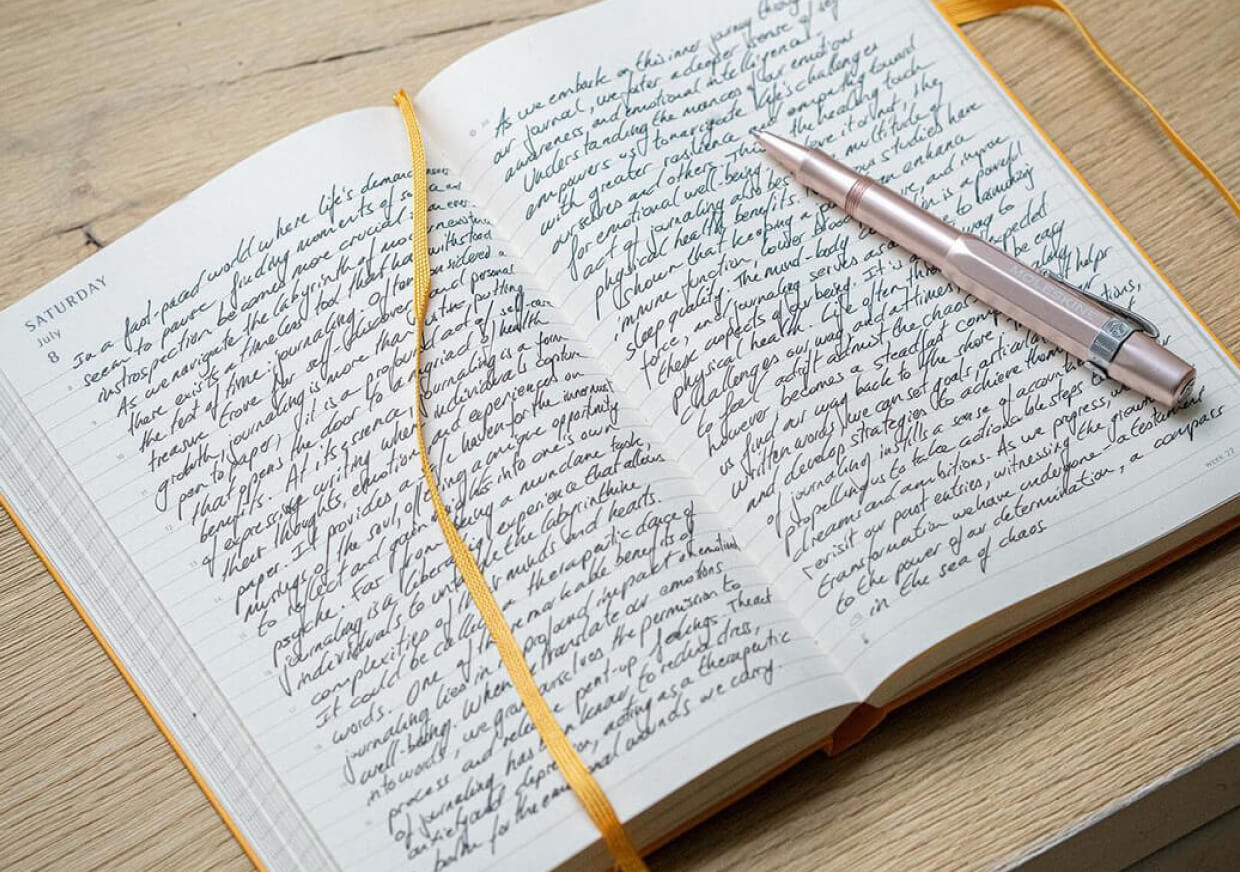 SATURDAY
July
8
In a fast-paced world where life's demands
seem to pause, finding moments of
introspection becomes more crucial than ever.
As we navigate the labyrinth of modern
there exists a timeless tool that has withstood
the test of time: journaling. Often considered a
treasure trove for self-discovery and personal
growth, journaling is more than just putting
pen to paper; it is a profound act of self-care
that opens the door to a myriad of health
benefits. At its essence, journaling is a form
of expressive writing where individuals capture
their thoughts, emotions and experiences on
paper. It provides a haven for the innermost
musings of the soul, offering a unique opportunity
to reflect and gain insights into one is own
psyche. Far from being a mundane task,
journaling is a liberating experience that allows
individuals to the labyrinthine
complexities of minds and hearts.
It could be called a therapeutic dance of
words. One of the remarkable benefits of
journaling lies in profound impact on emotional
well-being. When translate our emotions
into words, we ourselves the permission to
process and release pent-up feelings. The act
of journaling has been known to reduce stress,
anxiety and depression, acting as a therapeutic
balm for the emotional wounds we carry
As we embark on this inner journey through
our journal, we foster a deeper sense of self
awareness and emotional intelligence.
Understanding the nuances of our emotions
empowers us to navigate life's challenges
with greater resilience and empathy toward
ourselves and others. the healing touch
for emotional well-being, love it or not, the
act of journaling also multitude of
physical health benefits. studies have
shown that keeping a can enhance
immune function, lower and improve
sleep quality. The mind-body is a powerful
force, and journaling serves as a to harmonizing
these aspects of our being. It's a way to
physical health. Life often unexpected
challenges our way and at times, be easy
to feel adrift amidst the chaos.
however becomes a steadfast helps
us find our way back to the shore.
written words, we can set goals, articulate
and develop strategies to achieve them.
of journaling instills a sense of
propelling us to take actionable steps
dreams and ambitions. As we progress, we
revisit our past entries, witnessing the growth and
transformation we have undergone - a testament
to the power of our determination, a compass
in the sea of chaos
MOLESKINE
WEEK 27